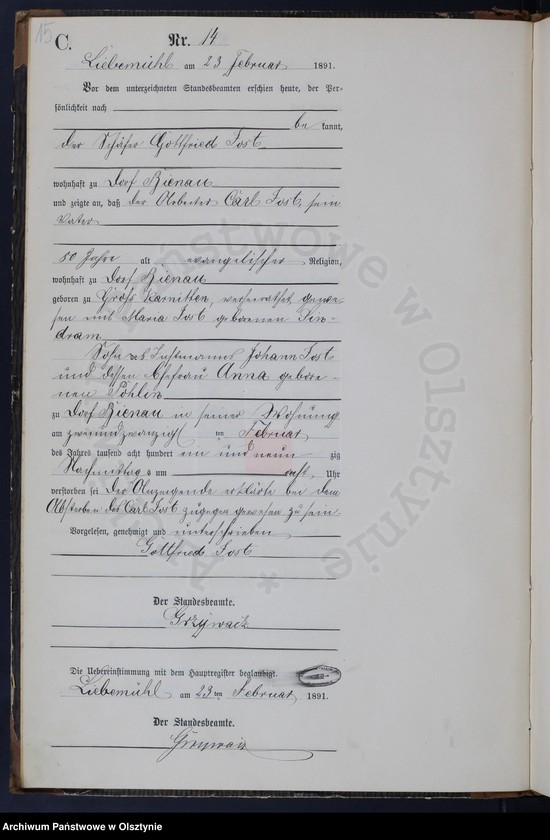 15
C.
Nr. 14
Liebemühl am 23 Februar 1891.
Vor dem unterzeichneten Standesbeamten erschien heute, der Per-
sönlichkeit nach
be kannt,
der Schäfer Gottfried Jost
wohnhaft zu Dorf Bienau
und zeigte an, daß der Arbeiter Carl Jost, sein
Vater
50 Jahre alt, evangelischer Religion,
wohnhaft zu Dorf Bienau
geboren zu Groß Karnitten, verheirathet gewe-
sen mit Maria Jost geborenen
Sohn des Instmanns Johann Jost
und dessen Ehefrau Anna gebore-
nen
zu Dorf Bienau in seiner Wohnung
am zweiundzwanzigsten Februar
des Jahres tausend acht hundert ein und neun zig
Nachmittags um acht Uhr
verstorben sei. Der Anzeigende erklärte bei dem
Absterben des Carl Jost zugegen gewesen zu sein.
Vorgelesen, genehmigt und unterschrieben
Gottfried Jost
Der Standesbeamte.
Grzywatz
Die Uebereinstimmung mit dem Hauptregister beglaubigt.
Liebemühl am 23ten Februar 1891.
Der Standesbeamte.
Archiwum Państwowe w Olsztynie
Archiwum Państwowe w Olsztynie